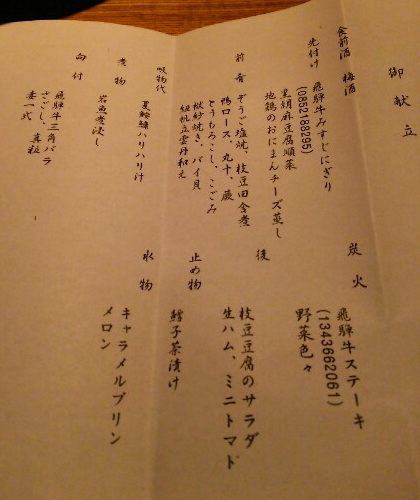 御献立
食前酒 梅酒
先付け 飛騨牛みすじにぎり
(0852188295)
黒胡麻豆腐順菜
地鶏のおにまんチーズ蒸し
前肴 ぞううご塩焼、枝豆田舎煮
鴨ロース、丸十、蕨
とうもろこし、こごみ
枇杷玉子、バイ貝
帆立雲丹和え
吸物代 夏鮟鱇ハリハリ汁
煮物 岩魚煮浸し
向付 飛騨牛三角バラ
さごし、真粒
妻一式
炭火 飛騨牛ステーキ
(1343662061)
野菜色々
後 枝豆豆腐のサラダ
生ハム、ミニトマト
止め物 鱈子茶漬け
水物 キャラメルプリン
メロン